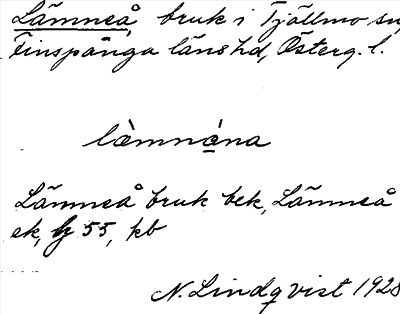 Lämneå, bruk i Tjällmo sn,
Finspånga länshd, Österg. l.
làmnána
Lämneå bruk bek, Lämneå
ek, bg 55, kb
N. Lindqvist 1928